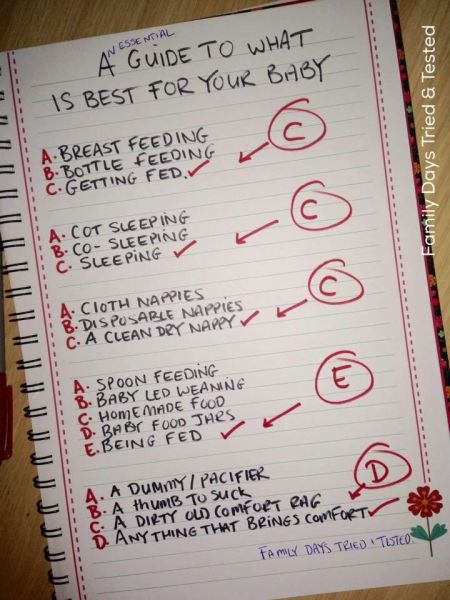 AN ESSENTIAL GUIDE TO WHAT
IS BEST FOR YOUR BABY
A. BREAST FEEDING
B. BOTTLE FEEDING
C. GETTING FED.
C
A. COT SLEEPING
B. CO-SLEEPING
C. SLEEPING
C
A. CLOTH NAPPIES
B. DISPOSABLE NAPPIES
C. A CLEAN DRY NAPPY
C
A. SPOON FEEDING
B. BABY LED WEANING
C. HOMEMADE FOOD
D. BABY FOOD JARS
E. BEING FED
E
A. A DUMMY/PACIFIER
B. A THUMB TO SUCK
C. A DIRTY OLD COMFORT RAG
D. ANYTHING THAT BRINGS COMFORT
D
FAMILY DAYS TRIED & TESTED.
Family Days Tried & Tested